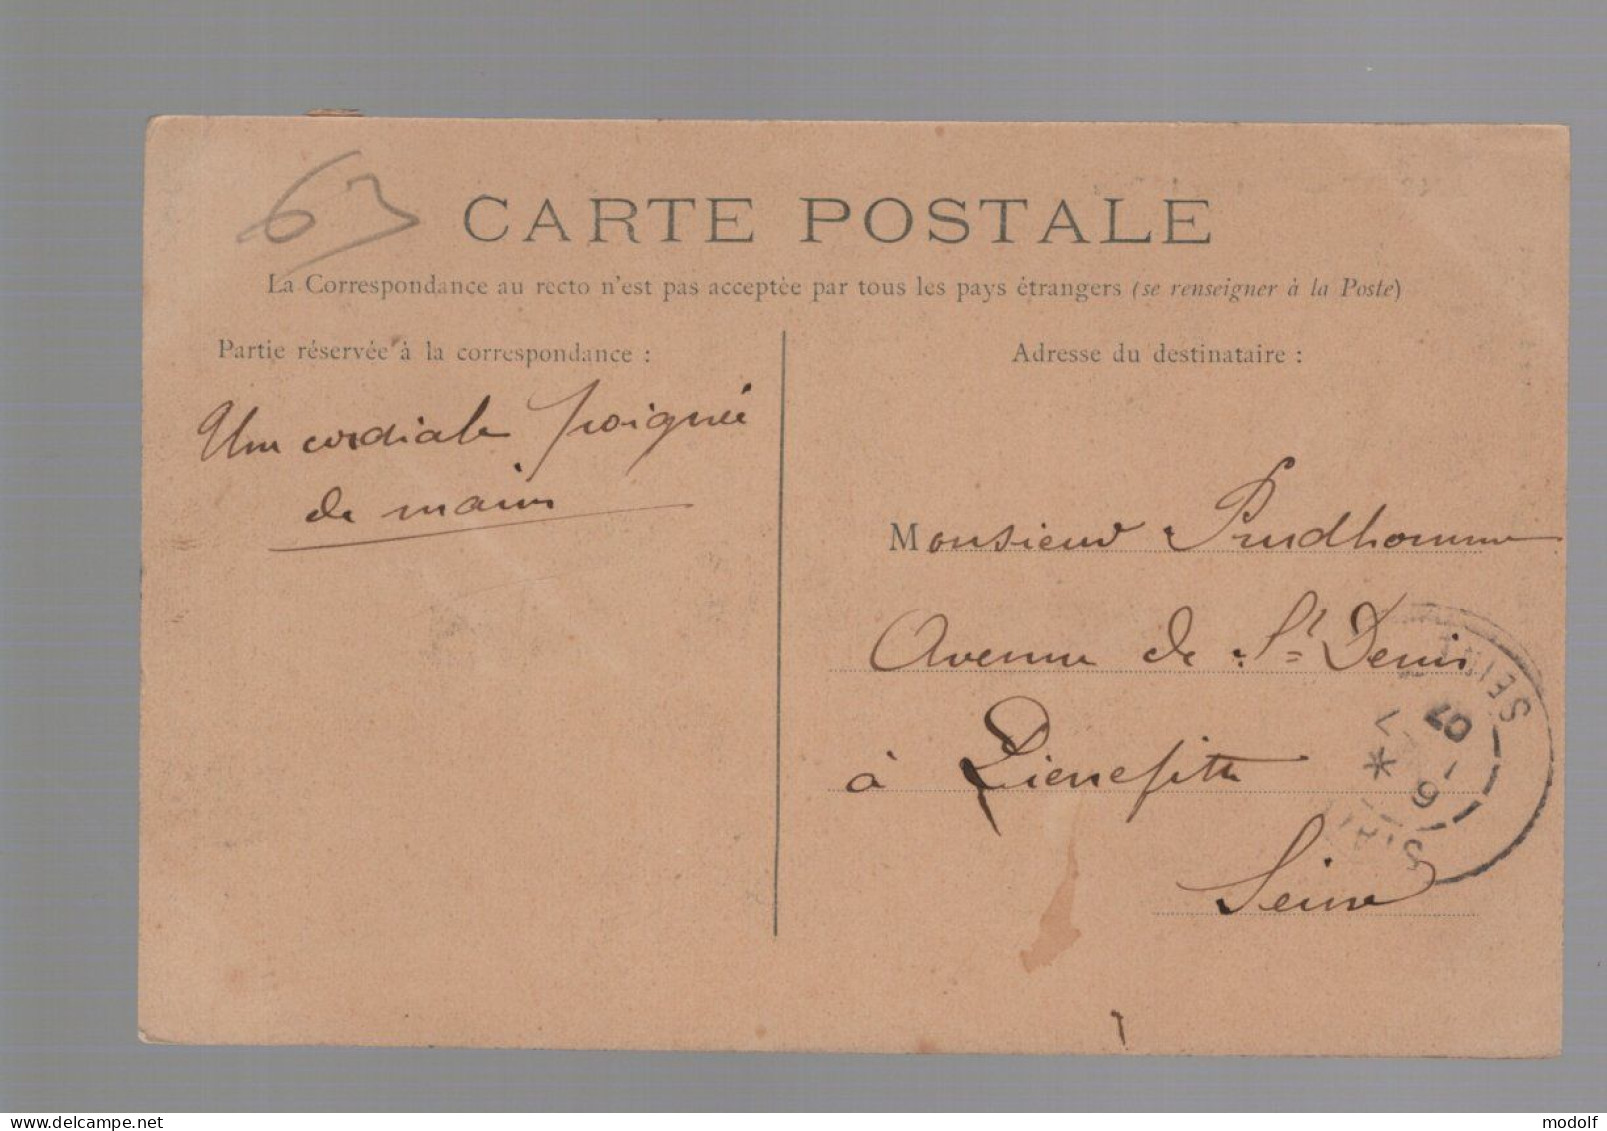 63
CARTE POSTALE
La Correspondance au recto n'est pas acceptée par tous les pays étrangers (se renseigner à la Poste)
Partie réservée à la correspondance :
Une cordiale poignée
de mains
Adresse du destinataire :
Monsieur Prudhomme
Avenue de St Denis
à Pierrefitte
Seine
SEINE
07
6
7
delcampe.net
modolf